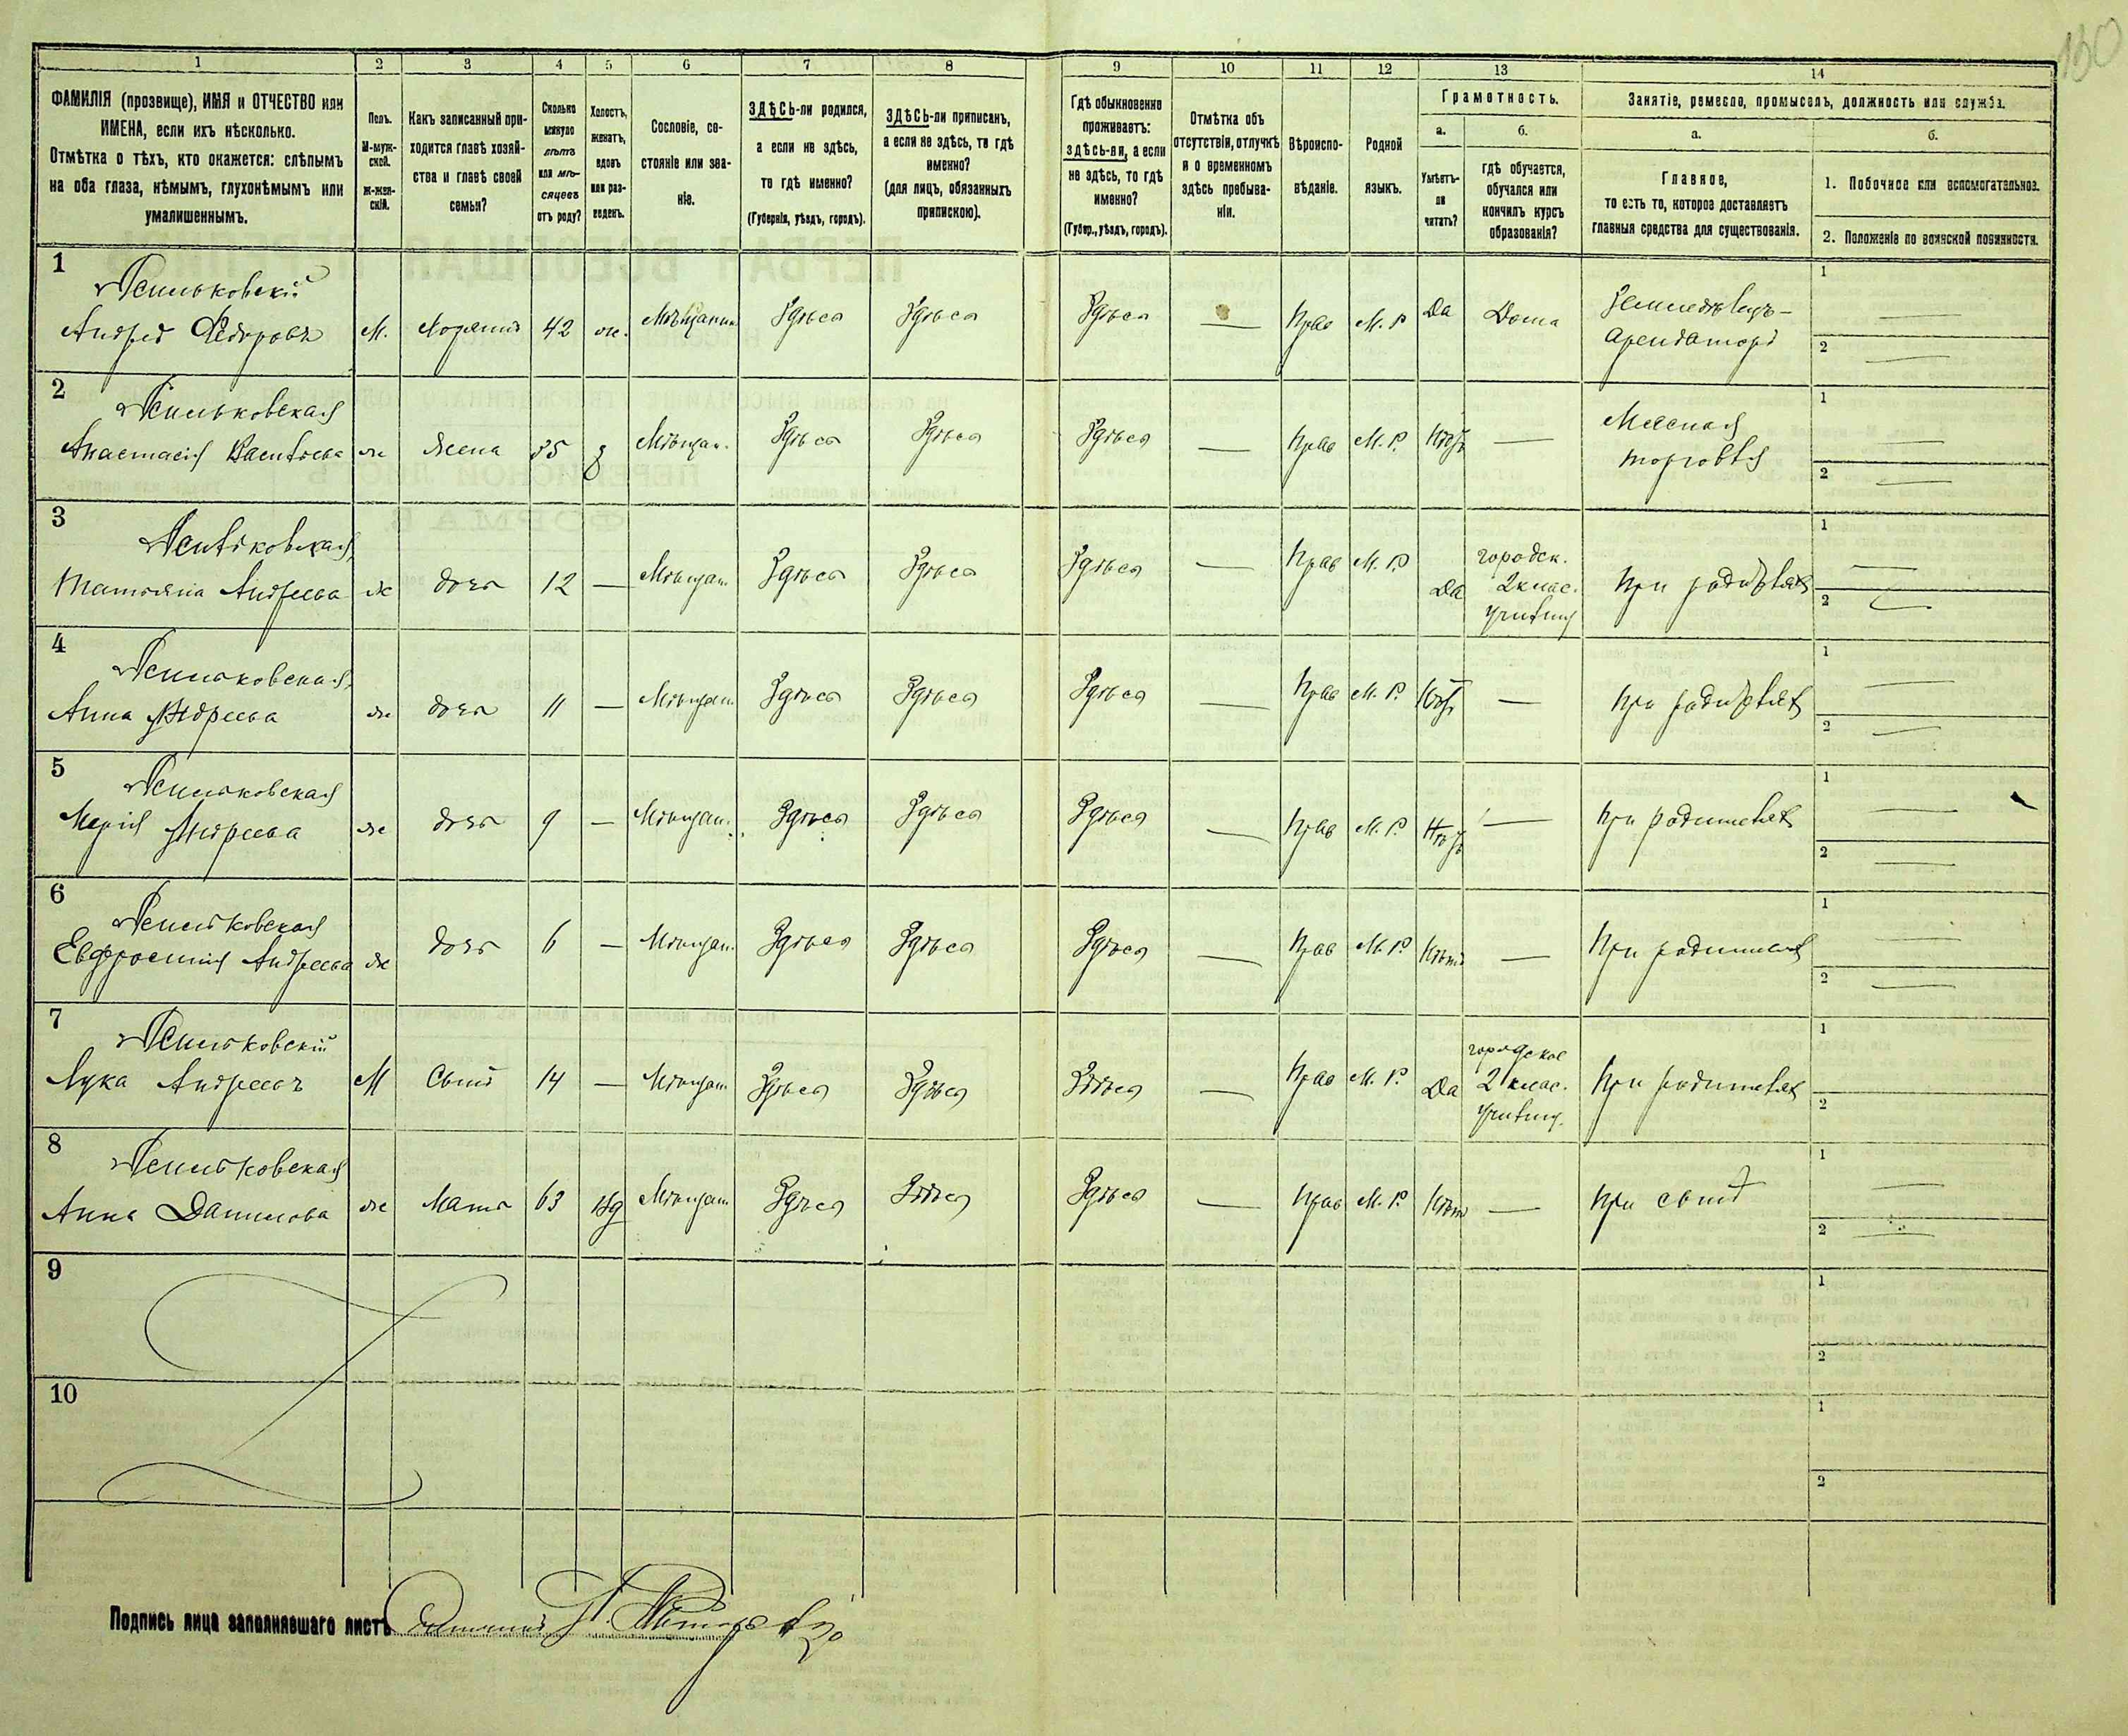 130
1 2 3 4 5 6 7 8 9 10 11 12 13 14
ФАМИЛІЯ (прозвище), ИМЯ и ОТЧЕСТВО или
ИМЕНА, если ихъ нѣсколько.
Отмѣтка о тѣхъ, кто окажется: слѣпымъ
на оба глаза, нѣмымъ, глухонѣмымъ или
умалишеннымъ.
Полъ.
М-муж-
ской.
Ж-жен-
скій.
Какъ записанный при-
ходится главѣ хозяй-
ства и главѣ своей
семьи?
Сколько
минуло
лѣтъ
или мѣ-
сяцевъ
отъ роду?
Холостъ,
женатъ,
вдовъ
или раз-
веденъ.
Сословіе, со-
стояніе или зва-
ніе.
ЗДѢСЬ-ли родился,
а если не здѣсь,
то гдѣ именно?
(Губернія, уѣздъ, городъ).
ЗДѢСЬ-ли приписанъ,
а если не здѣсь, то гдѣ
именно?
(для лицъ, обязанныхъ
припискою).
Гдѣ обыкновенно
проживаетъ:
здѣсь-ли, а если
не здѣсь, то гдѣ
именно?
(Губер., уѣздъ, городъ).
Отмѣтка объ
отсутствіи, отлучкѣ
и о временномъ
здѣсь пребыва-
ніи.
Вѣроиспо-
вѣданіе.
Родной
языкъ.
Грамотность.
а.
Умѣетъ-
ли
читать?
б.
гдѣ обучается,
обучался или
кончилъ курсъ
образованія?
Занятіе, ремесло, промыселъ, должность или служба.
а.
Главное,
то есть то, которое доставляетъ
главныя средства для существованія.
б.
1. Побочное или вспомогательное.
2. Положеніе по воинской повинности.
1
Андрей Ѳедоровъ М. Хозяинъ 42 ж. Мѣщанин Здѣсь Здѣсь Здѣсь — Прав М. Р Да Дома Земледѣлецъ-
арендаторъ
1 —
2 —
2
Анастасія Васильева ж жена 35 з Мѣщан. Здѣсь Здѣсь Здѣсь — Прав М. Р. Нѣтъ — Мясная
торговля
1 —
2 —
3
Татьяна Андреева ж дочь 12 — Мѣщан. Здѣсь Здѣсь Здѣсь — Прав М. Р. Да городск.
2 клас.
училищ
при родителях
1 —
2 —
4
Анна Андреева ж дочь 11 — Мѣщан. Здѣсь Здѣсь Здѣсь — Прав М. Р. Нѣтъ — при родителях
1 —
2 —
5
Марія Андреева ж дочь 9 — Мѣщан. Здѣсь Здѣсь Здѣсь — Прав М. Р. Нѣтъ — при родителях
1 —
2 —
6
Евфросинія Андреева ж дочь 6 — Мѣщан. Здѣсь Здѣсь Здѣсь — Прав М. Р. Нѣтъ — При родителях
1 —
2 —
7
Лука Андреевъ М Сынъ 14 — Мѣщан. Здѣсь Здѣсь Здѣсь — Прав М. Р. Да городское
2 клас.
училищ.
При родителях
1
2
8
Анна Данилова ж Мать 63 вд Мѣщан. Здѣсь Здѣсь Здѣсь — Прав М. Р. Нѣт — при сынѣ
1 —
2 —
9
1
2
10
1
2
Подпись лица заполнявшаго листъ